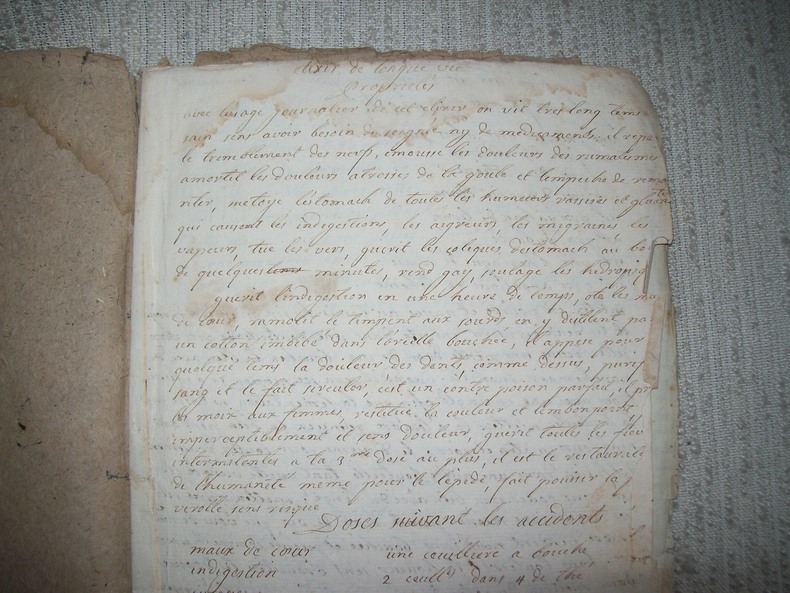 elixir de longue vie
Proprietés
avec lusage journalier de cet elixir on vit tres long tems
sain sens avoir besoin de seigné ny de medicaments: il repa
le tremblement des nerfs, emousse les douleurs des rumatismes
amortit les douleurs de la goute et lempeche de remo
nter, netoÿe lestomach de toutes les humeurs rassises et gluante
qui causent les indigestions, les aigreurs, les migraines les
vapeurs, tue les vers, guerit les coliques destomach au bo
de quelques minutes, rend gay, soulage les hidropiq
guerit lindigestion en une heure de temps, ote les ma
de coeur, ramolit le timpent aux sourds en y dutilent pa
un cotton imbibé dans loreille bouchée, il appese pour
quelque tems la douleur des dents, comme dessus, purif
sang et le fait sirculer, c'est un contre poison parfait, il pr
les moix aux femmes, restitue la couleur et lembonpoint,
imperceptiblement et sens douleur, guerit toutes les fiev
intermitentes a la 3me dose au plus, il est le restaurate
de lhumanité meme pour le lepide, fait pousser la
verolle sens risque
Doses suivant les accidents
maux de coeur une couilliere a bouche
indigestion 2 couills dans 4 de thé